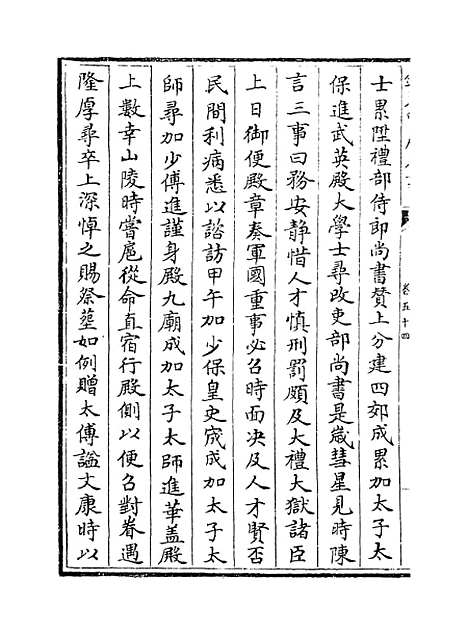 士累陞禮部侍郎尚書贊上分建四郊成累加太子太
保進武英殿大學士尋改吏部尚書是歲彗星見時陳
言三事曰務安静惜人才慎刑罰頗及大禮大獄諸臣
上日御便殿章奏軍國重事必召時面决及人才賢否
民間利病悉以諮訪甲午加少保皇史宬成加太子太
師尋加少傅進謹身殿九廟成加太子太師進華盖殿
上數幸山陵時嘗扈從命直宿行殿側以便召對眷遇
隆厚尋卒上深悼之賜祭塟如例贈太傅諡文康時以
卷五十四